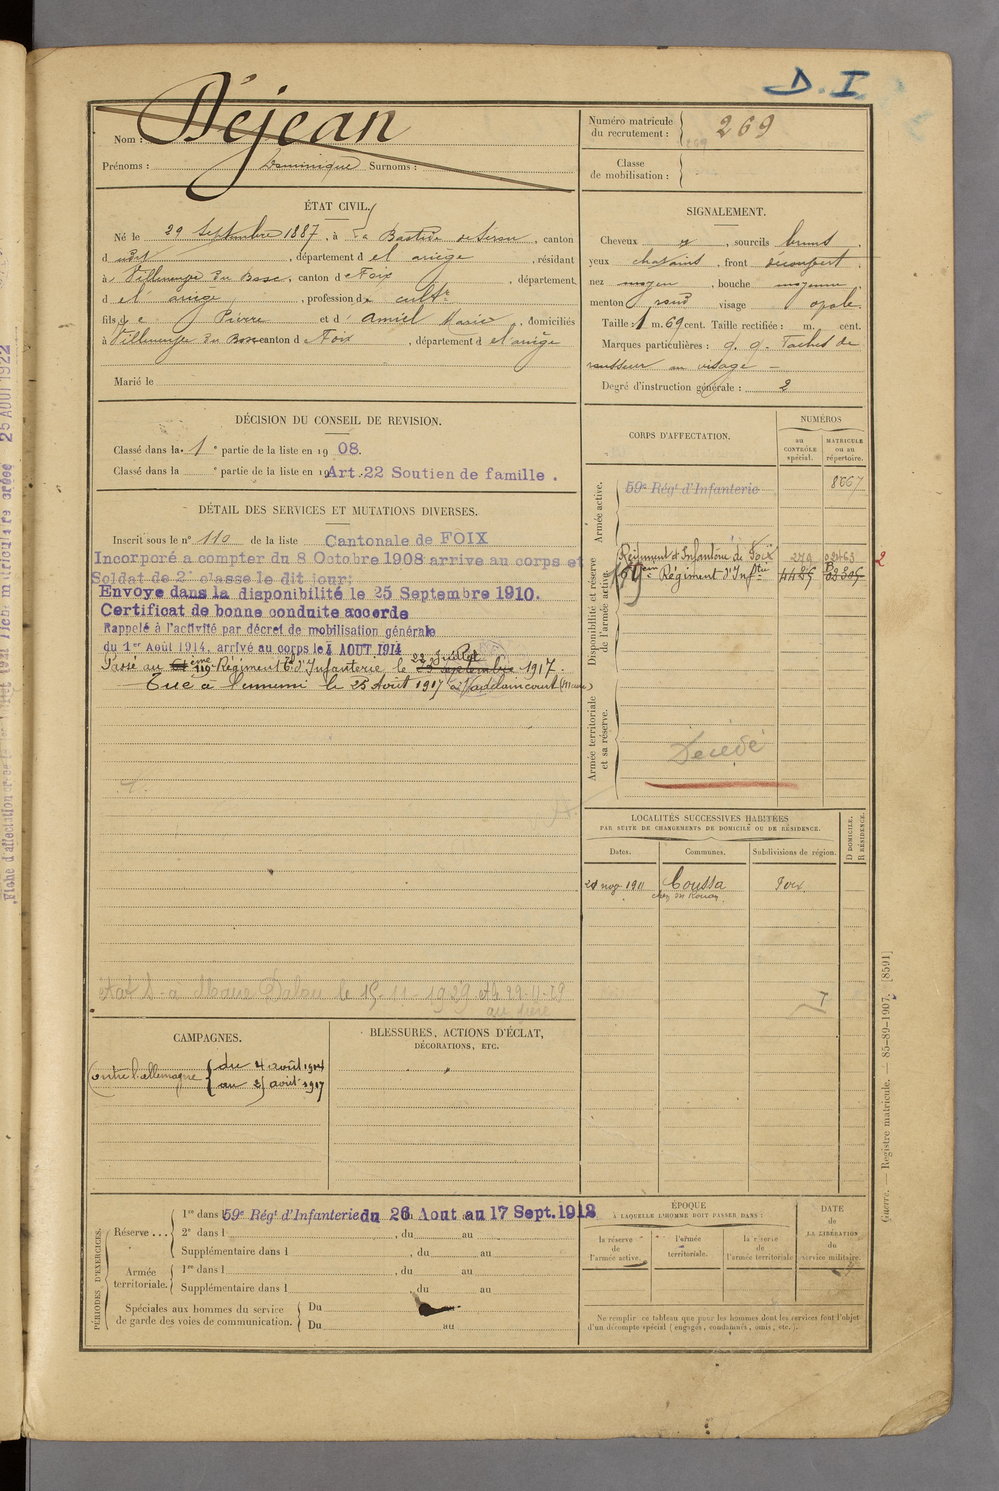 D. I.
Nom : Déjean
Prénoms : Dominique Surnoms :
Numéro matricule
du recrutement : 269
Classe
de mobilisation :
ÉTAT CIVIL.
Né le 29 Septembre 1887, à La Bastide de Sérou, canton
d udit, département d el ariège, résidant
à Villeneuve du Bosc, canton de Foix, département
d el' ariège, profession de cultr
fils de Pierre et d' Amiel Marie, domiciliés
à Villeneuve du Bosc canton d Foix, département d el'ariège
Marié le
SIGNALEMENT.
Cheveux, sourcils bruns,
yeux chatains, front découvert,
nez moyen, bouche moyenne
menton rond visage ovale.
Taille : 1 m. 69 cent. Taille rectifiée : m. cent.
Marques particulières : q. q. Taches de
rousseur au visage —
Degré d'instruction générale : 2
DÉCISION DU CONSEIL DE REVISION.
Classé dans la 1e partie de la liste en 1908.
Classé dans la e partie de la liste en 19 Art.22 Soutien de famille.
CORPS D'AFFECTATION.
NUMÉROS
AU CONTRÔLE spécial.
MATRICULE ou au répertoire.
Armée active.
59e Régt d'Infanterie 8667
Disponibilité et réserve
de l'armée active.
Régiment d'Infanterie de Foix 279 02463 2
159eme Régiment d'Inftie 4485
Armée territoriale
et sa réserve.
Décédé
DÉTAIL DES SERVICES ET MUTATIONS DIVERSES.
Inscrit sous le n° 110 de la liste Cantonale de FOIX
Incorporé a compter du 8 Octobre 1908 arrive au corps et
Soldat de 2e classe le dit jour;
Envoye dans la disponibilité le 25 Septembre 1910.
Certificat de bonne conduite accorde
Rappelé à l'activité par décret de mobilisation générale
du 1er Août 1914, arrivé au corps le 4 AOUT 1914
Passé au 119 ème Régiment d'Infanterie le 22 Juillet 1917.
Tué à l'ennemi le 25 Août 1917 à Vadelaincourt (Meuse)
LOCALITÉS SUCCESSIVES HABITÉES
PAR SUITE DE CHANGEMENTS DE DOMICILE OU DE RÉSIDENCE.
Dates. Communes. Subdivisions de région.
D DOMICILE.
R RÉSIDENCE.
21 nov 1911 Coussa Foix.
le 15-11-1929 29-11-29
CAMPAGNES.
Contre l'allemagne { du 4 août 1914
au 25 août 1917
BLESSURES, ACTIONS D'ÉCLAT,
DÉCORATIONS, ETC.
PÉRIODES D'EXERCICES.
Réserve ... 1re dans l 59e Régt d'Infanterie du 26 Aout au 17 Sept. 1912
2e dans l , du au
Supplémentaire dans l , du au
Armée
territoriale. 1re dans l , du au
Supplémentaire dans l , du au
Spéciales aux hommes du service
de garde des voies de communication. Du
Du au
ÉPOQUE
À LAQUELLE L'HOMME DOIT PASSER DANS :
la réserve
de
l'armée active.
l'armée
territoriale.
la réserve
de
l'armée territoriale
DATE
de
LA LIBÉRATION
du
service militaire.
Ne remplir ce tableau que pour les hommes dont les services font l'objet
d'un décompte spécial (engagés, condamnés, omis, etc.).
Guerre. — Registre matricule. — 85-89-1907. [8591]
25 AOUT 1922